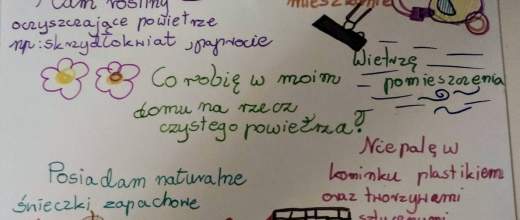 Mam rośliny
oczyszczające powietrze
np: skrzydłokwiat, paprocie
mieszkanie
Wietrzę
pomieszczenia
Co robię w moim
domu na rzecz
czystego powietrza?
Nie palę w
kominku plastikiem
oraz tworzywami
sztucznymi
Posiadam naturalne
świeczki zapachowe